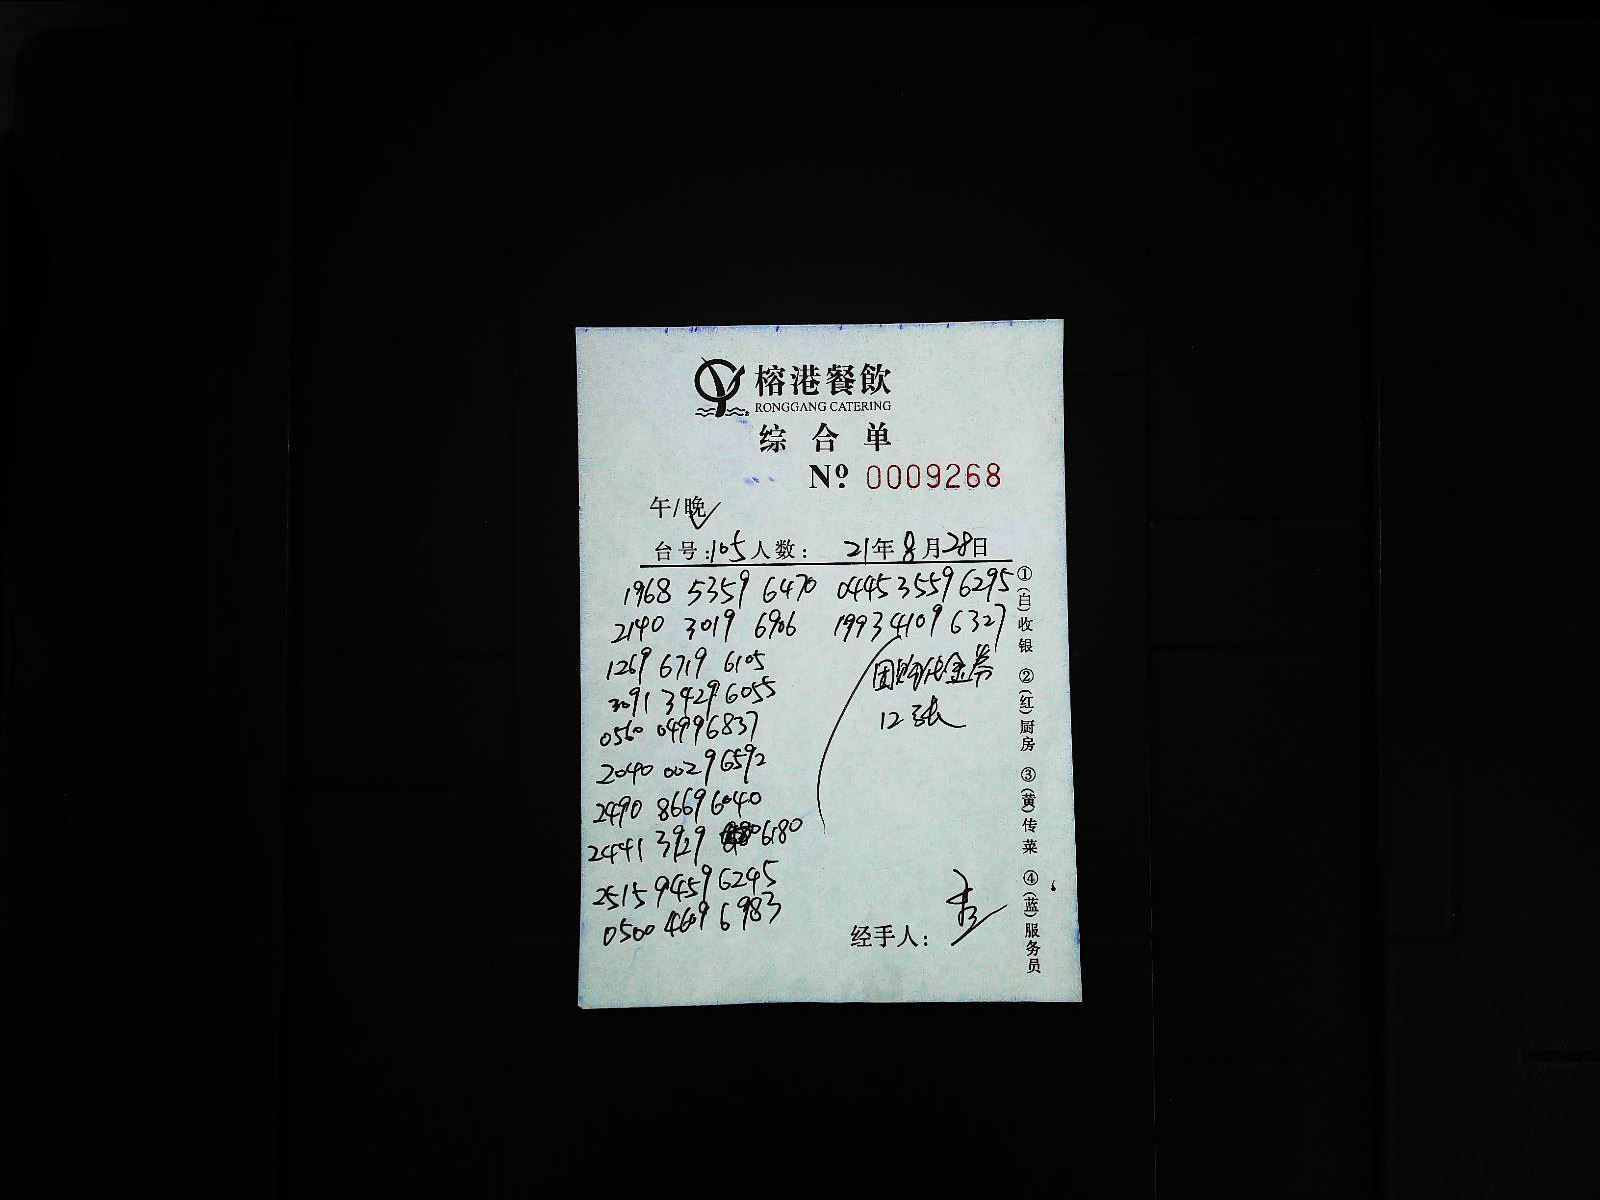 榕港餐飲
RONGGANG CATERING
综合单
Nº 0009268
午/晚
台号:105人数: 21年8月28日
1968 5359 6470 0445 3559 6295
2140 3019 6906 1993 4109 6327
1269 6719 6105
3091 3429 6055
0560 0499 6837
2040 0029 6592
2490 8669 6040
2441 3929 6180
2515 9459 6245
0500 4609 6983
团购代金券
12张
经手人:
①(白)收银 ②(红)厨房 ③(黄)传菜 ④(蓝)服务员